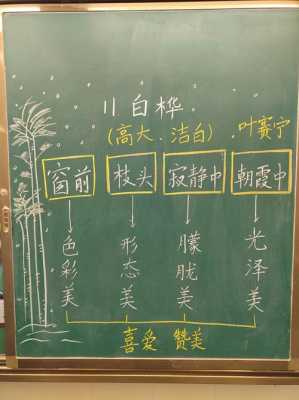 11 白桦
(高大、洁白) 叶赛宁
窗前 枝头 寂静中 朝霞中
色彩美 形态美 朦胧美 光泽美
喜爱 赞美